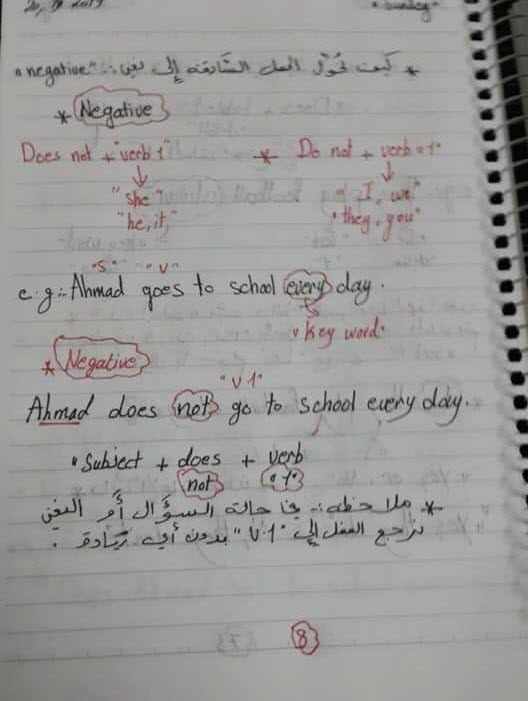 "Sunday"
* كيف نحوّل الجمل السابقة إلى نفي :. "negative"
* Negative
Does not + "verb 1" * Do not + verb "1"
"she" "I, we"
"he, it," "they, you"
"S" "V"
e.g:. Ahmad goes to school every day.
"key word"
* Negative
"V 1"
Ahmad does not go to school every day.
"Subject + does + verb
not "1"
* ملاحظة :. في حالة السؤال أم النفي
نرجع الفعل إلى "V.1" بدون أي زيادة .
8